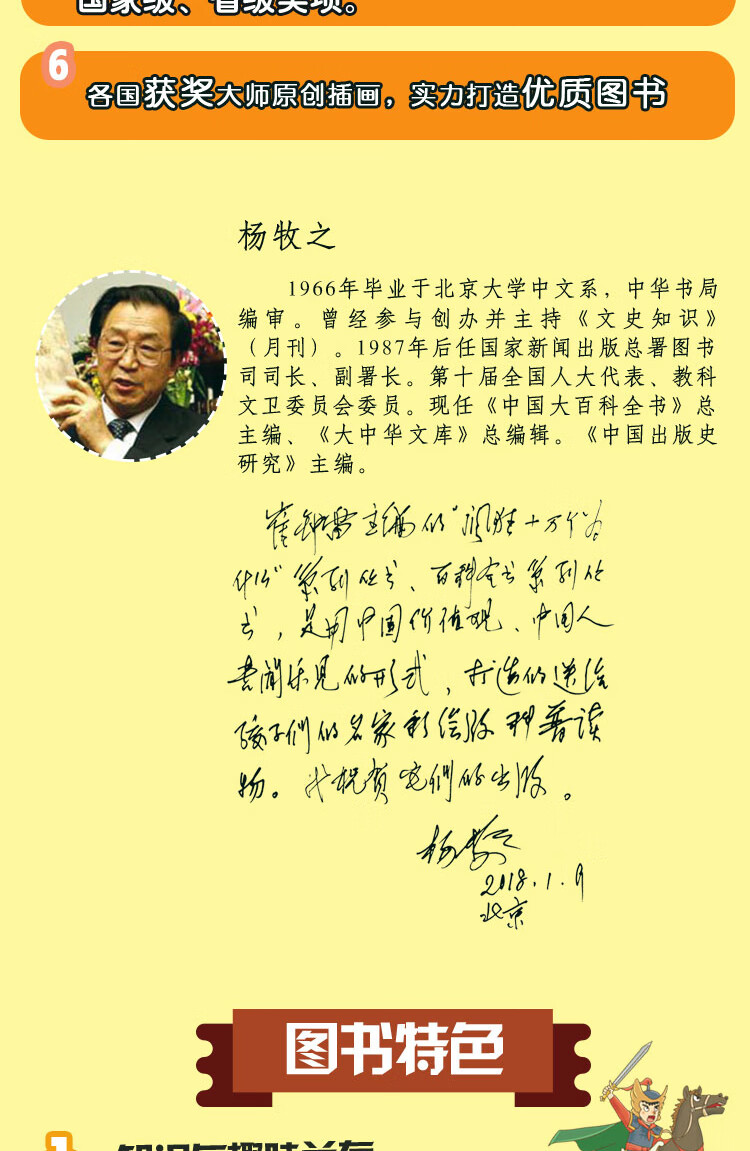 国家级、省级奖项。
6
各国获奖大师原创插画，实力打造优质图书
杨牧之
1966年毕业于北京大学中文系，中华书局
编审。曾经参与创办并主持《文史知识》
（月刊）。1987年后任国家新闻出版总署图书
司司长、副署长。第十届全国人大代表、教科
文卫委员会委员。现任《中国大百科全书》总
主编、《大中华文库》总编辑。《中国出版史
研究》主编。
崔钟雷主编的"问胜十万个为
什么"系列丛书、百科全书系列丛
书，是用中国价值观、中国人
喜闻乐见的形式，打造的送给
孩子們的名家彩绘版科普读
物。我祝贺它們的出版。
杨牧之
2018.1.9
北京
图书特色
1
知识与趣味并存